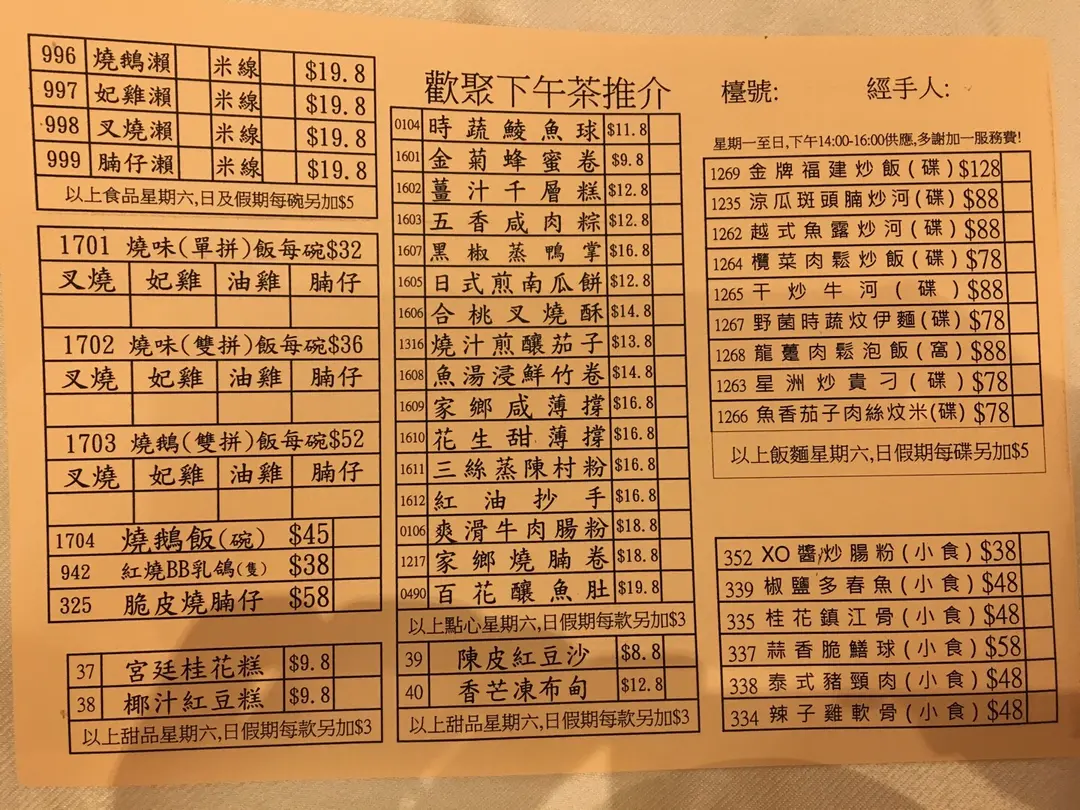 996 燒鵝瀨 米線 $19.8
997 妃雞瀨 米線 $19.8
998 叉燒瀨 米線 $19.8
999 腩仔瀨 米線 $19.8
以上食品星期六,日及假期每碗另加$5
1701 燒味(單拼)飯每碗$32
叉燒 妃雞 油雞 腩仔
1702 燒味(雙拼)飯每碗$36
叉燒 妃雞 油雞 腩仔
1703 燒鵝(雙拼)飯每碗$52
叉燒 妃雞 油雞 腩仔
1704 燒鵝飯(碗) $45
942 紅燒BB乳鴿(隻) $38
325 脆皮燒腩仔 $58
37 宮廷桂花糕 $9.8
38 椰汁紅豆糕 $9.8
以上甜品星期六,日假期每款另加$3
歡聚下午茶推介
0104 時蔬鯪魚球 $11.8
1601 金菊蜂蜜卷 $9.8
1602 薑汁千層糕 $12.8
1603 五香咸肉粽 $12.8
1607 黑椒蒸鴨掌 $16.8
1605 日式煎南瓜餅 $12.8
1606 合桃叉燒酥 $14.8
1316 燒汁煎釀茄子 $13.8
1608 魚湯浸鮮竹卷 $14.8
1609 家鄉咸薄撐 $16.8
1610 花生甜薄撐 $16.8
1611 三絲蒸陳村粉 $16.8
1612 紅油抄手 $16.8
0106 爽滑牛肉腸粉 $18.8
1217 家鄉燒腩卷 $18.8
0490 百花釀魚肚 $19.8
以上點心星期六,日假期每款另加$3
39 陳皮紅豆沙 $8.8
40 香芒凍布甸 $12.8
以上甜品星期六,日假期每款另加$3
檯號: 經手人:
星期一至日,下午14:00-16:00供應,多謝加一服務費!
1269 金牌福建炒飯(碟) $128
1235 涼瓜斑頭腩炒河(碟) $88
1262 越式魚露炒河(碟) $88
1264 欖菜肉鬆炒飯(碟) $78
1265 干炒牛河(碟) $88
1267 野菌時蔬炆伊麵(碟) $78
1268 龍躉肉鬆泡飯(窩) $88
1263 星洲炒貴刁(碟) $78
1266 魚香茄子肉絲炆米(碟) $78
以上飯麵星期六,日假期每碟另加$5
352 XO醬炒腸粉(小食) $38
339 椒鹽多春魚(小食) $48
335 桂花鎮江骨(小食) $48
337 蒜香脆鱔球(小食) $58
338 泰式豬頸肉(小食) $48
334 辣子雞軟骨(小食) $48